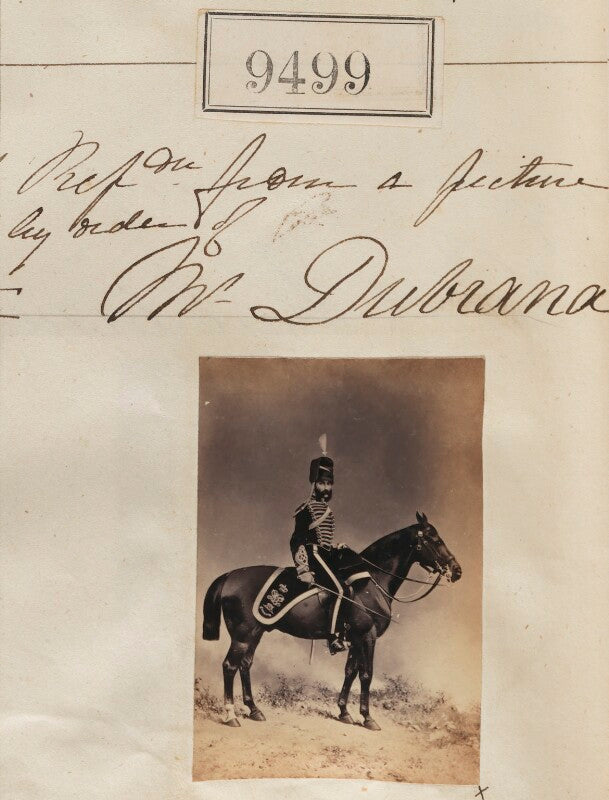 9499
Refdn from a picture
by order of
Mr Dubrana
x